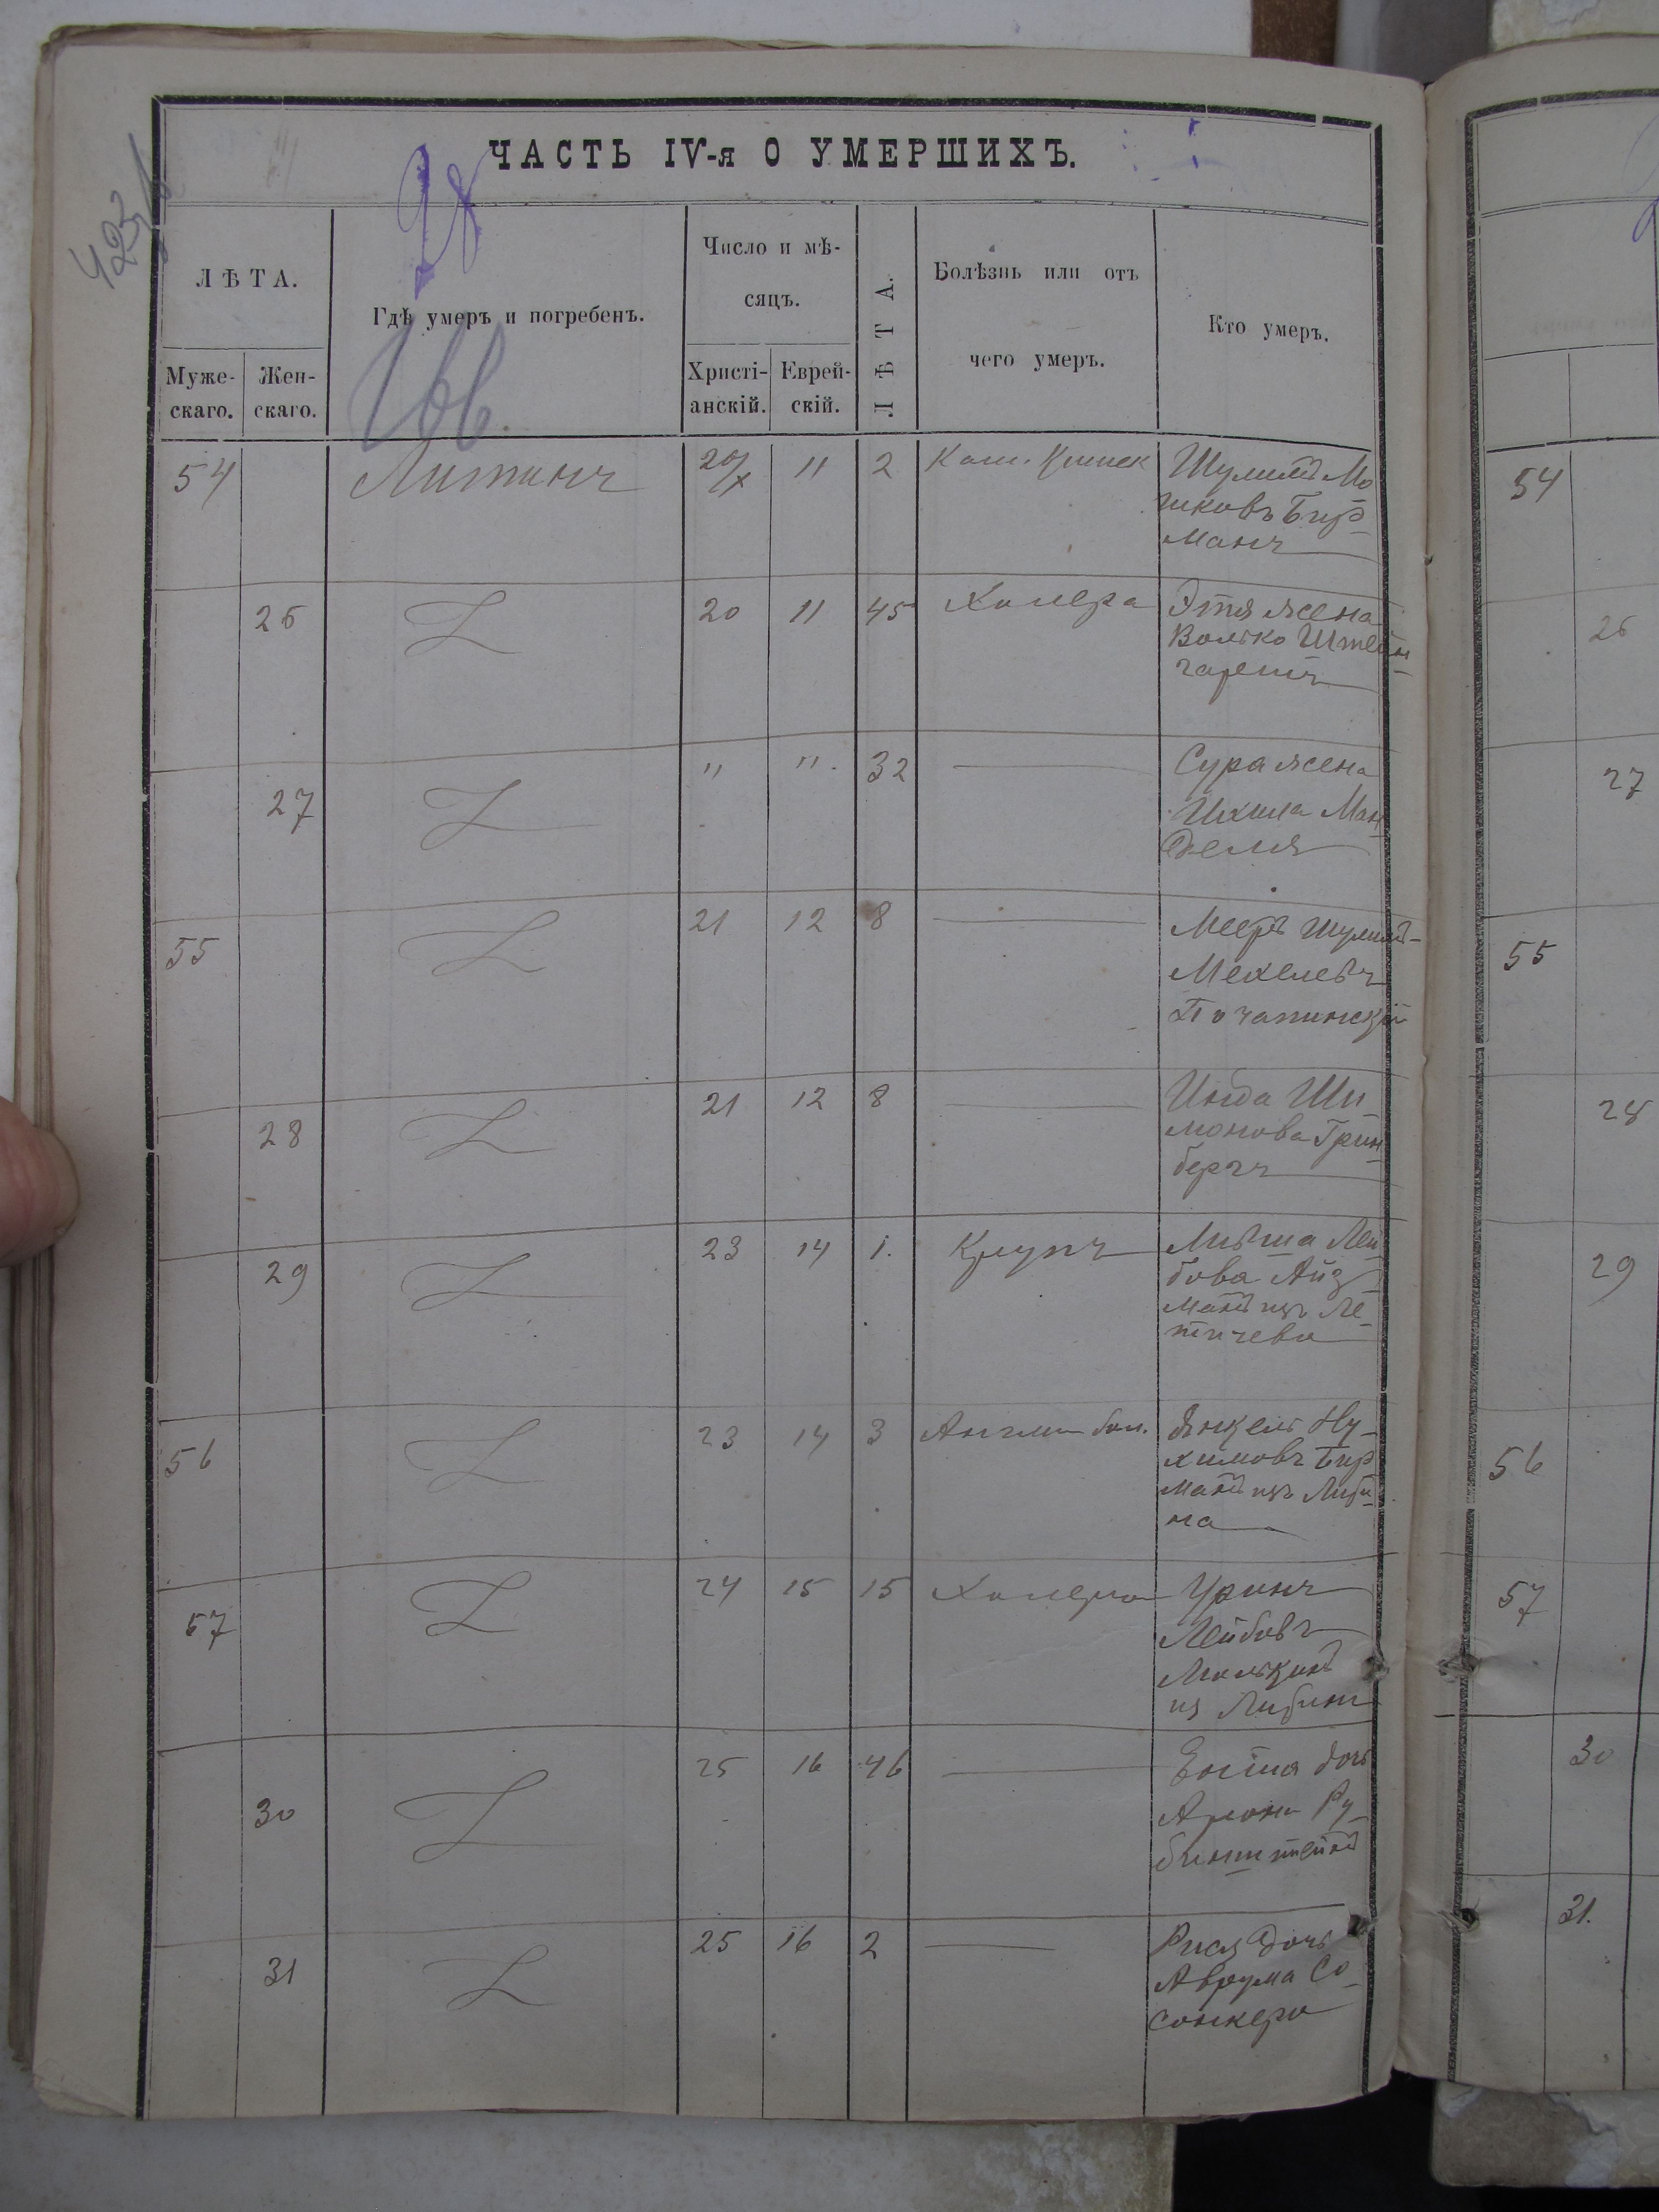 ЧАСТЬ IV-я О УМЕРШИХЪ.
28
ЛѢТА.
Муже-
скаго.
Жен-
скаго.
Гдѣ умеръ и погребенъ.
Число и мѣ-
сяцъ.
Христі-
анскій.
Еврей-
скій.
ЛѢТА.
Болѣзнь или отъ
чего умеръ.
Кто умеръ.
54 Литинъ 20/X 11 2
Мо
шковъ Бир
манъ
26 20 11 45 Холера Этя жена
Волько Штейн
гартъ
27 " " 32 — Сура жена
Ихила Ман
деля
55 21 12 8 — Мееръ Шулимъ-
Мехелевъ
Почапинскій
28 21 12 8 — Инда Ши
монова Грин
бергъ
29 23 14 1. Крупъ Лей
бова Айз
манъ изъ Ле
тичева
56 23 14 3 Англи бол. Янкель Ну
химовъ Бир
манъ изъ
на
57 24 15 15 Холера
Лейбовъ
из
30 25 16 46 — дочь
Арона Ру
бинштейнъ
31 25 16 2 — Рися дочь
Аврума Со
сонкера
54
26
27
55
28
29
56
57
30
31.